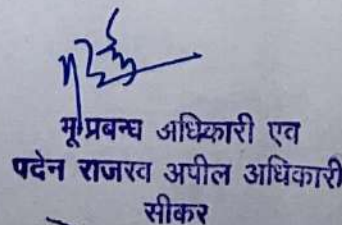 भू प्रबन्ध अधिकारी एव
पदेन राजरव अपील अधिकारी
सीकर